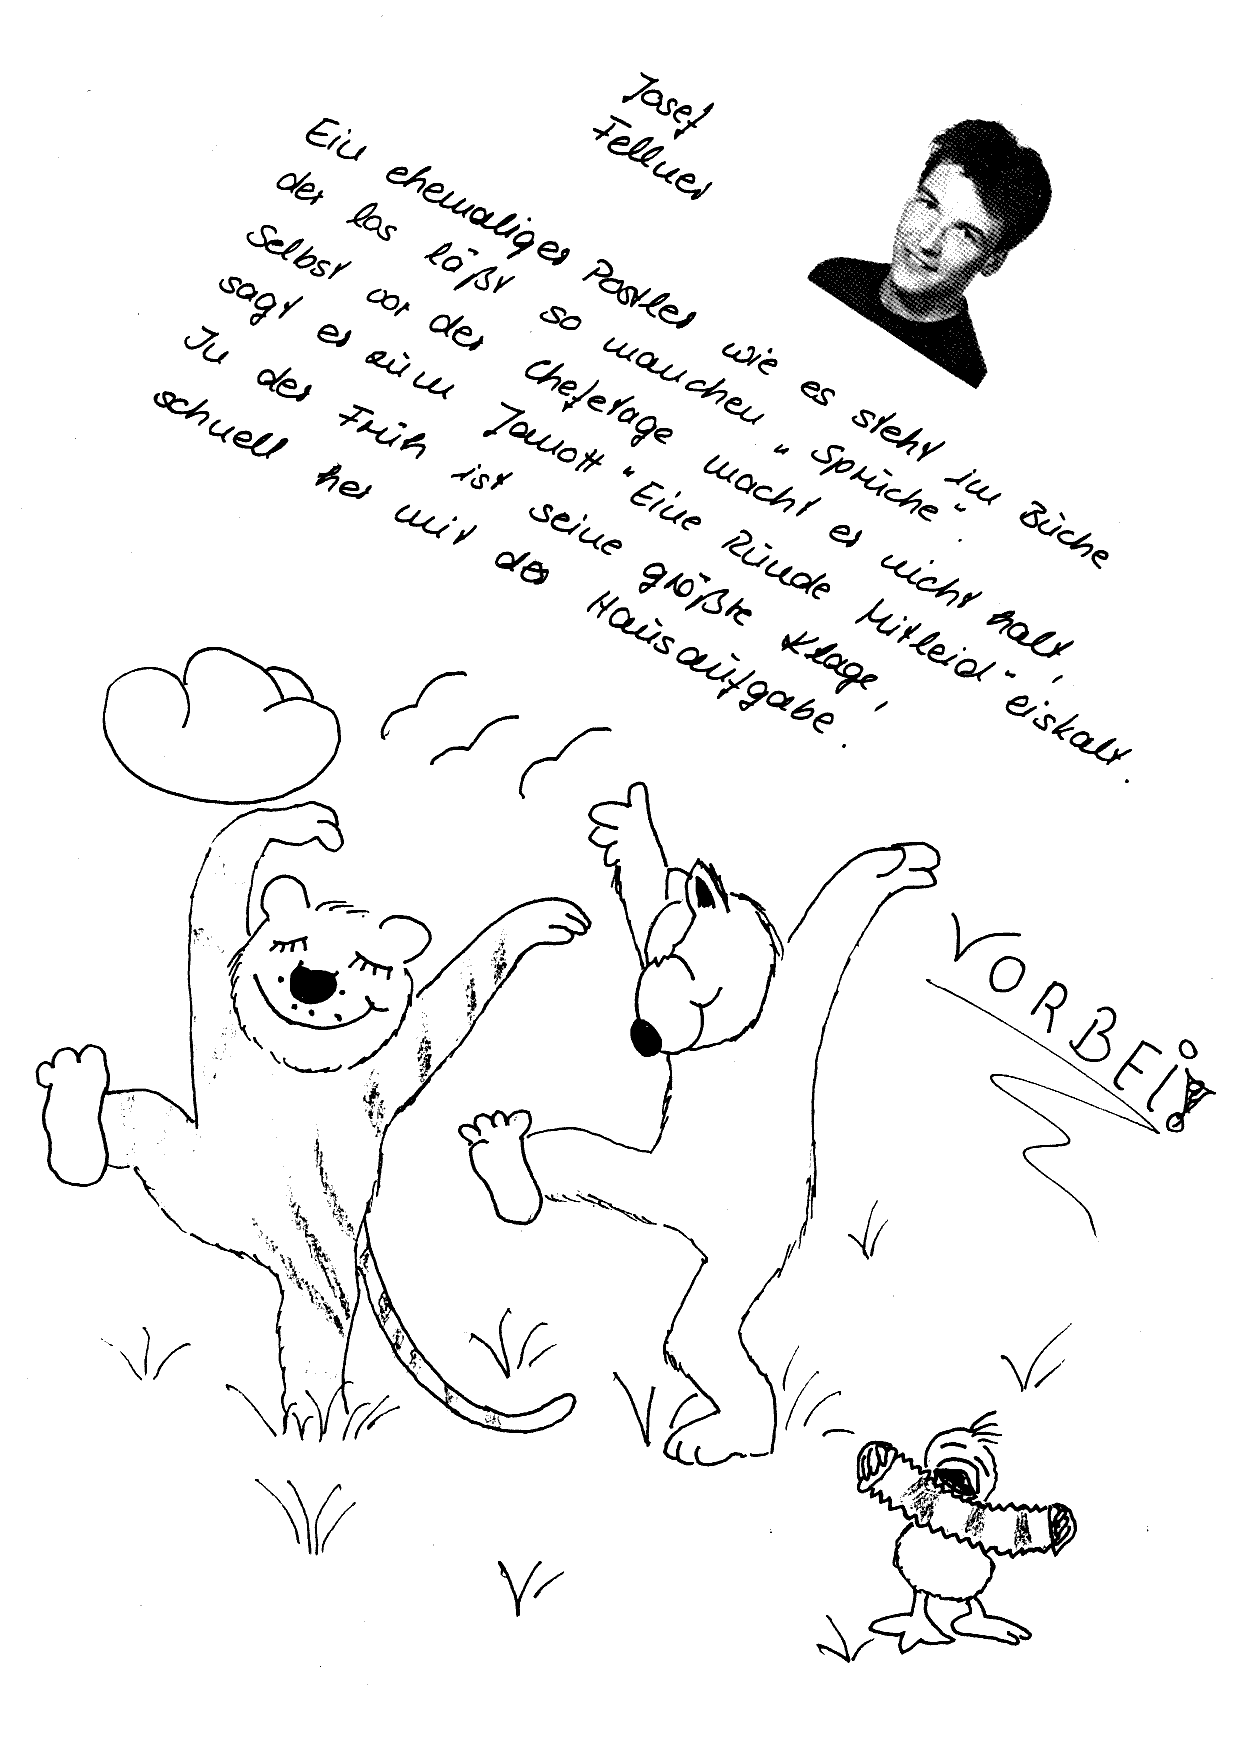 Josef
Fellner
Ein ehemaliger Postler wie es steht im Buche
der los läßt so manchen "Sprüche".
Selbst vor der Chefetage macht er nicht halt,
sagt er zum Jamott "Eine Runde Mitleid" eiskalt.
In der Früh ist seine größte Klage,
schnell her mit der Hausaufgabe.
VORBEI!